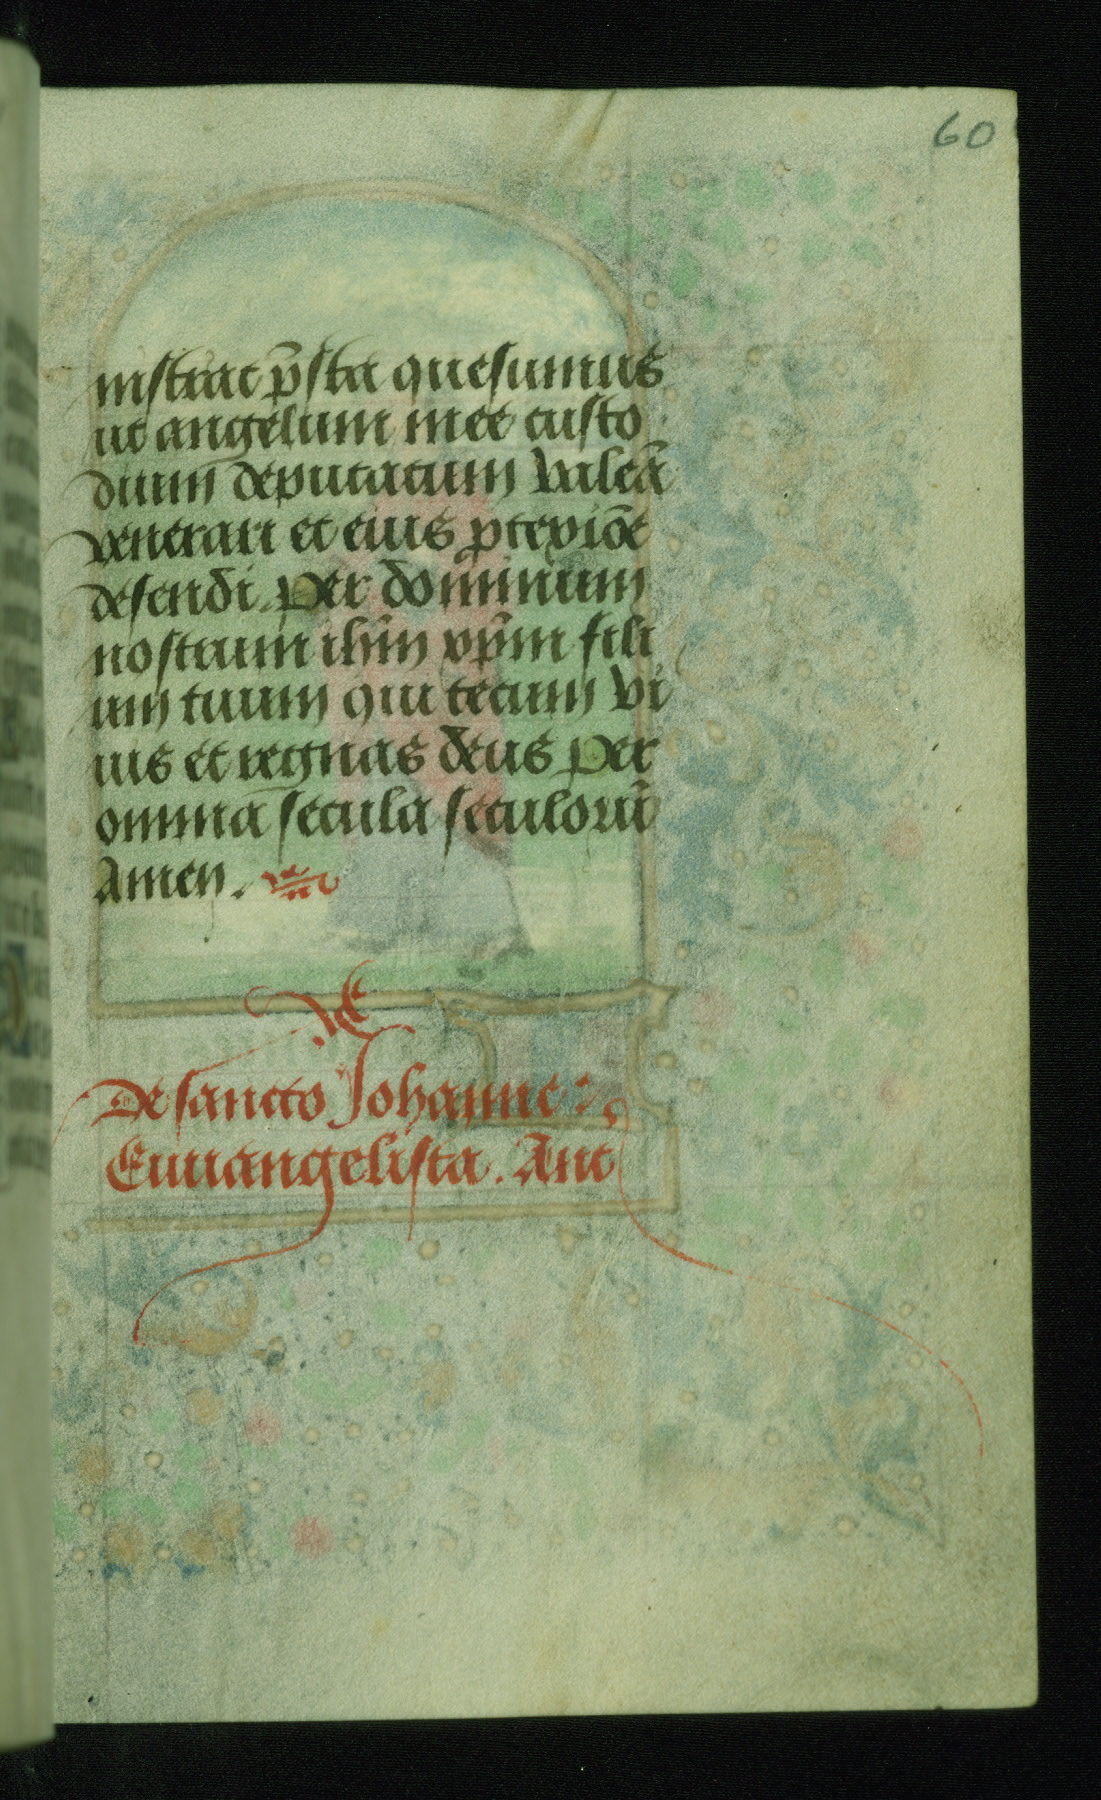 60
nistrat p̄sta quesumus
ut angelum mee custo
dium deputatum valeā
venerari et eius ꝓtexiōe
defendi. Per dominum
nostrum ihm̄ xp̄m fili
um tuum qui tecum vi
uis et regnas deus per
omnia secula seculorū
Amen.
De sancto Johanne
Euuangelista. Ant